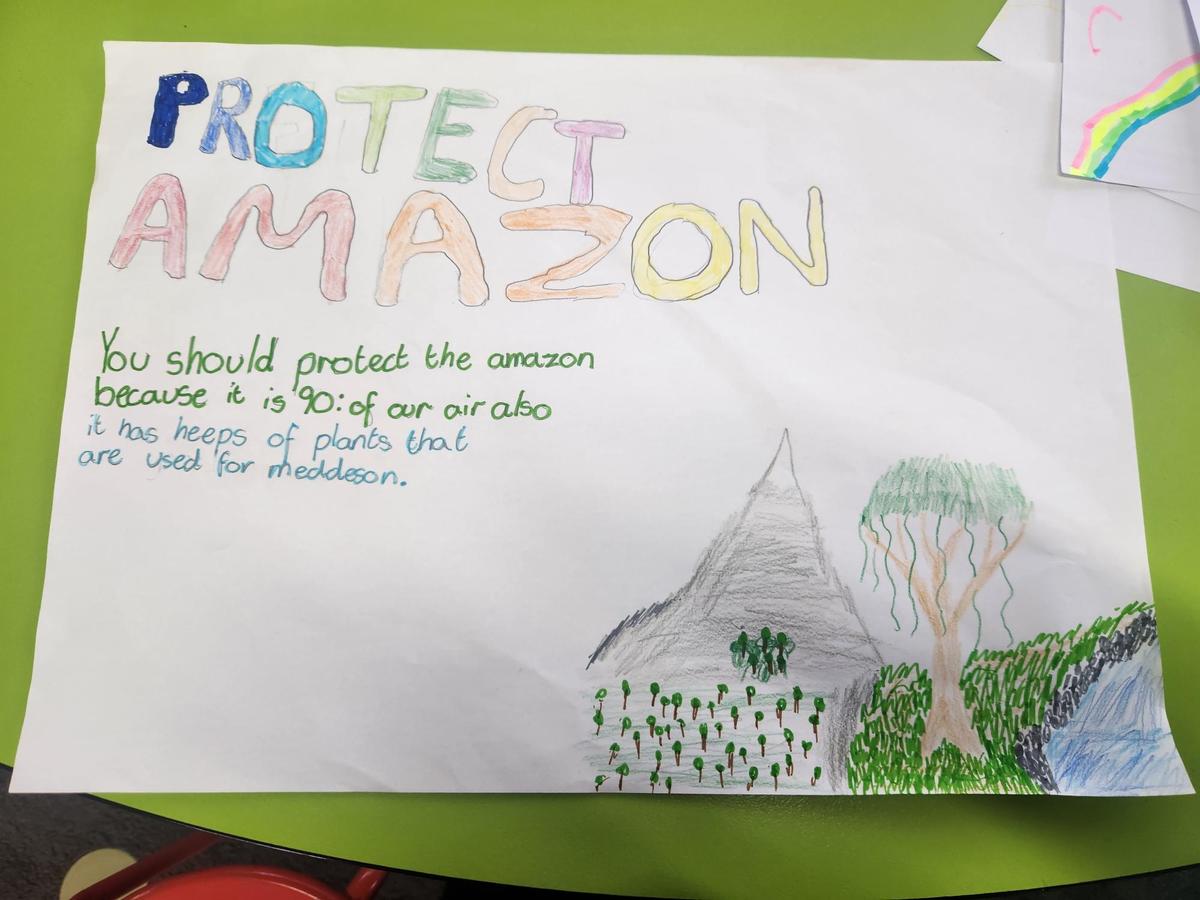 PROTECT
AMAZON
You should protect the amazon
because it is 90: of our air also
it has heeps of plants that
are used for meddeson.